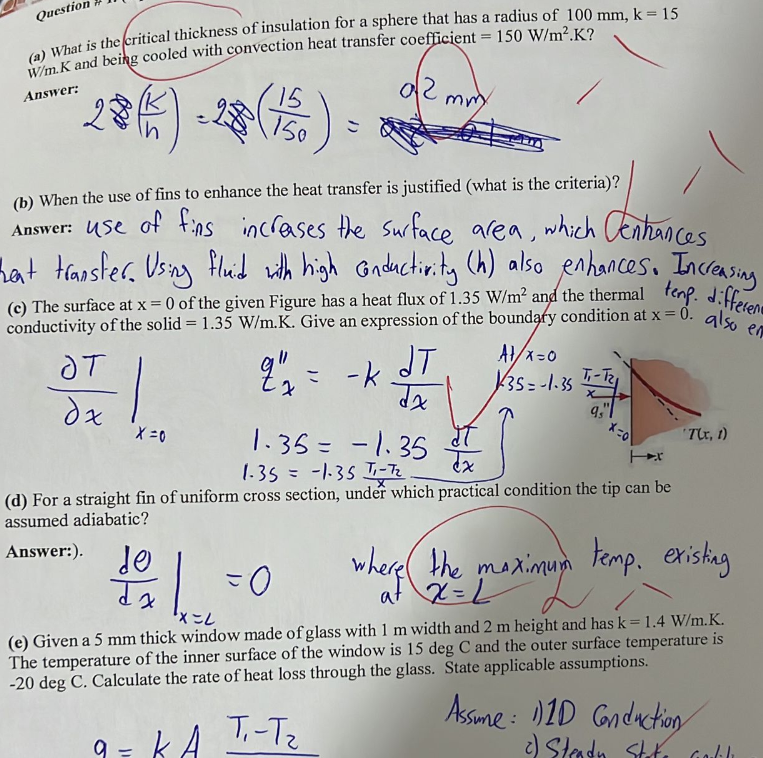 Question #
(a) What is the critical thickness of insulation for a sphere that has a radius of 100 mm, k = 15
W/m.K and being cooled with convection heat transfer coefficient = 150 W/m².K?
Answer:
2 (k/h) = 2 (15/150) = 0.2 mm
(b) When the use of fins to enhance the heat transfer is justified (what is the criteria)?
Answer: use of fins increases the surface area, which enhances
heat transfer. Using fluid with high conductivity (h) also enhances. Increasing
temp. differen
also en
(c) The surface at x = 0 of the given Figure has a heat flux of 1.35 W/m² and the thermal
conductivity of the solid = 1.35 W/m.K. Give an expression of the boundary condition at x = 0.
∂T/∂x | x=0
q''x = -k dT/dx
At x=0
1.35 = -1.35 T₁-T₂/x | x=0
1.35 = -1.35 dT/dx
1.35 = -1.35 T₁-T₂/x
qs"
T(x, t)
x
(d) For a straight fin of uniform cross section, under which practical condition the tip can be
assumed adiabatic?
Answer:).
dθ/dx | x=L = 0
where the maximum temp. existing
at x=L
(e) Given a 5 mm thick window made of glass with 1 m width and 2 m height and has k = 1.4 W/m.K.
The temperature of the inner surface of the window is 15 deg C and the outer surface temperature is
-20 deg C. Calculate the rate of heat loss through the glass. State applicable assumptions.
q = kA T₁-T₂
Assume: 1) 1D Conduction
2) Steady State